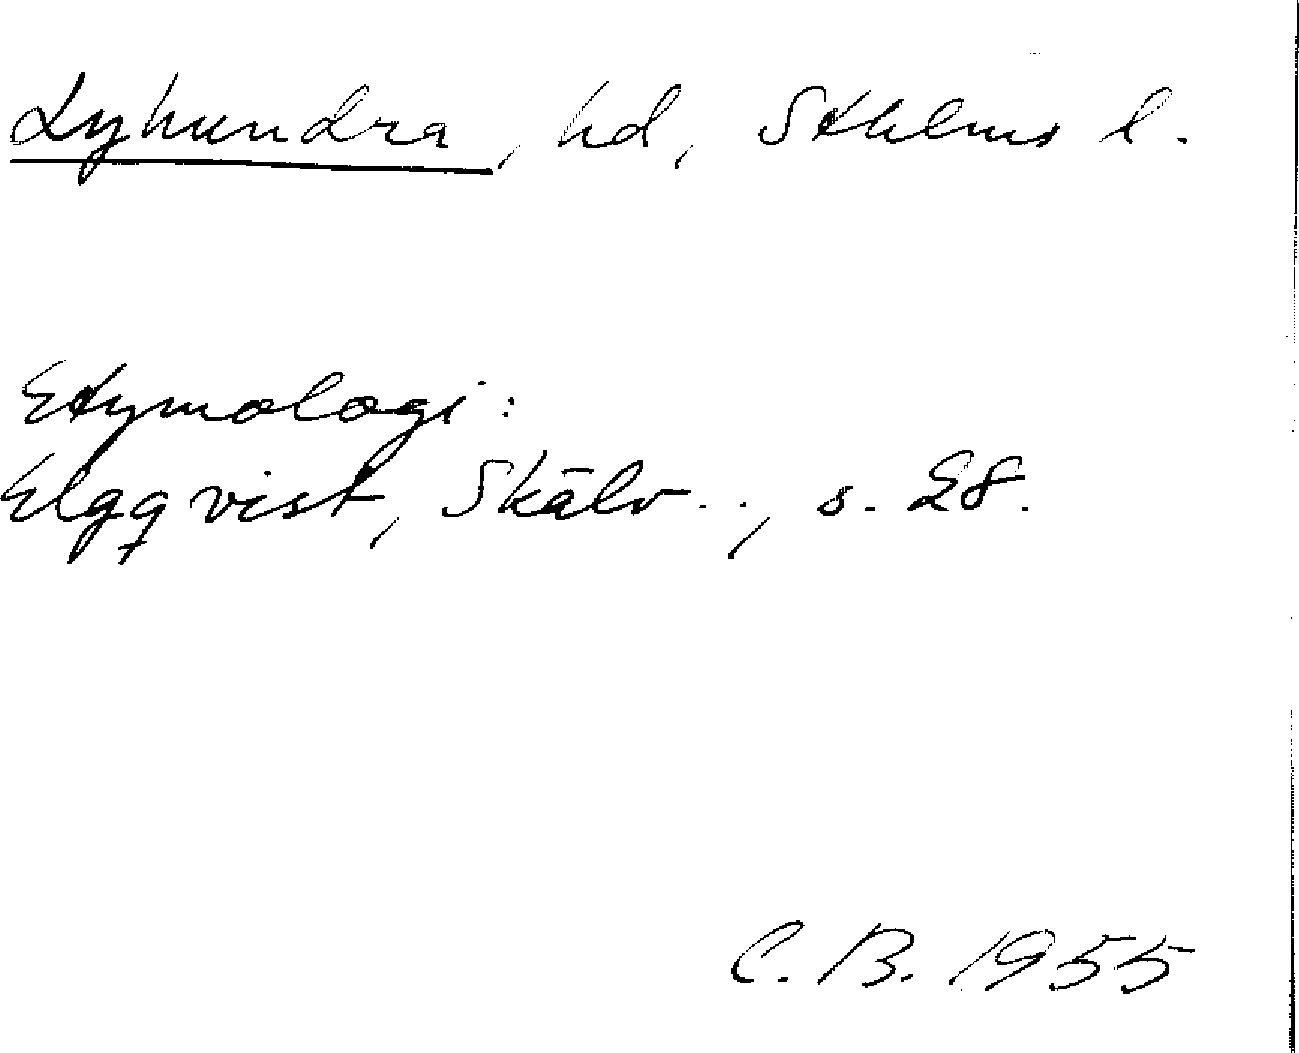 Lyhundra, hd, Sthlms l.
Etymologi:
Elgqvist, Skälv.., s. 28.
C. B. 1955